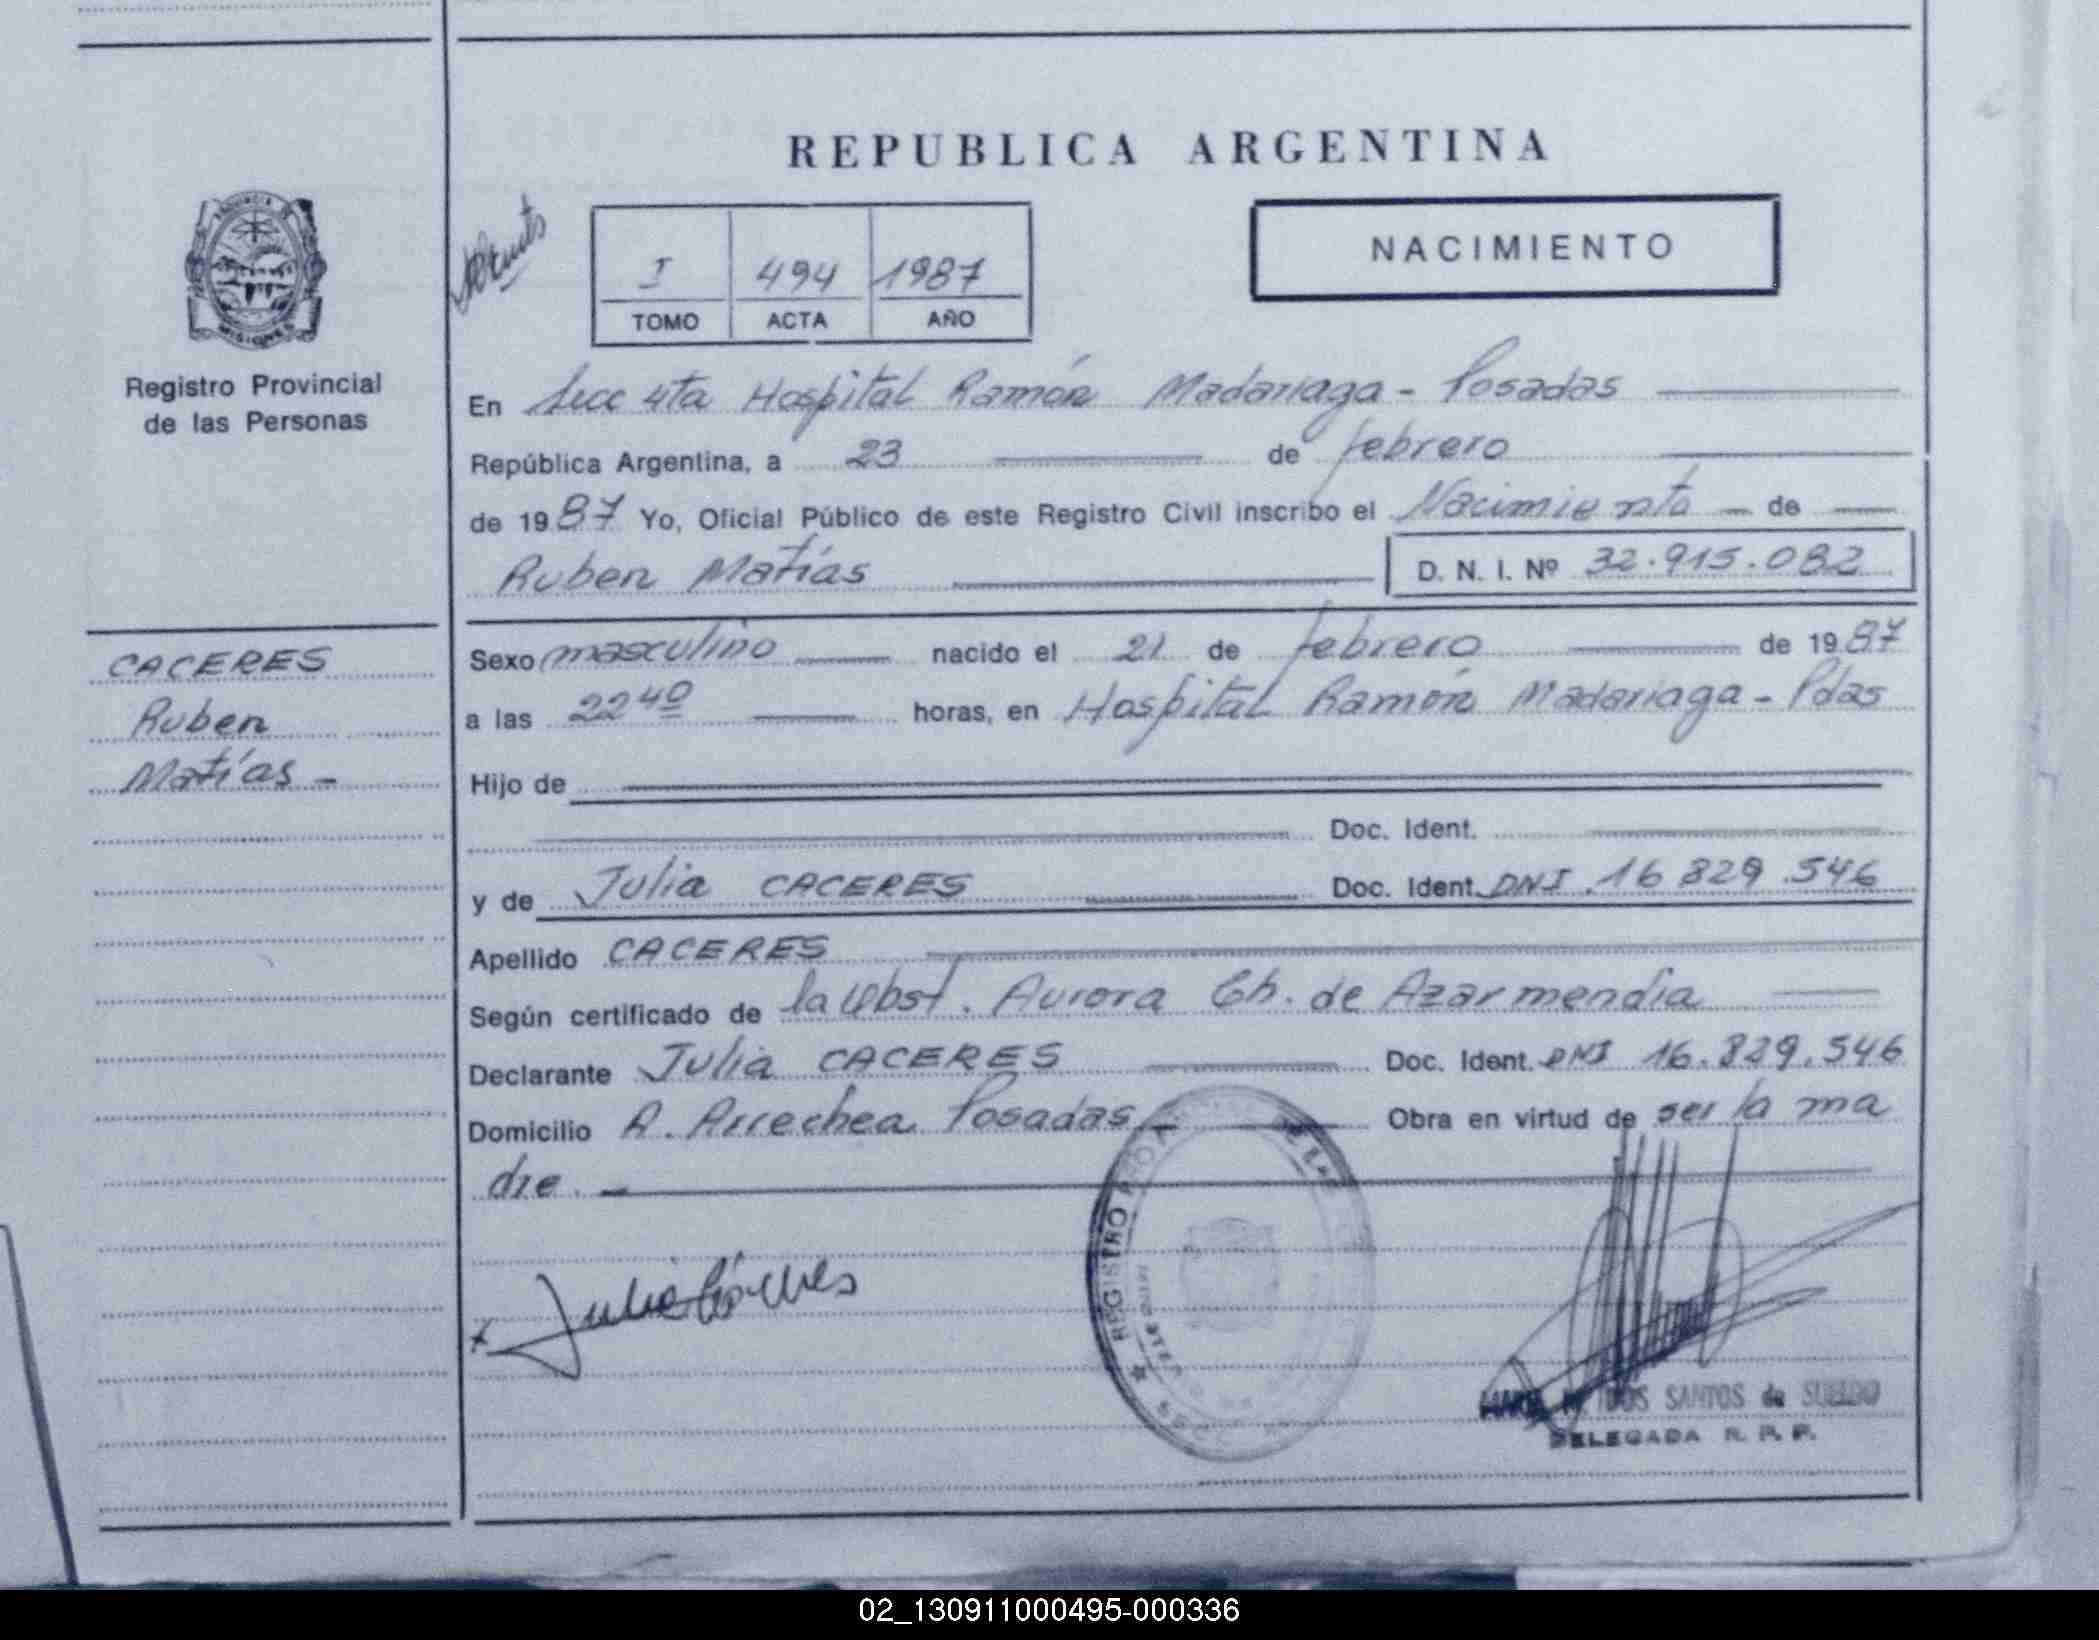 REPUBLICA ARGENTINA
PROVINCIA DE
MISIONES
Registro Provincial
de las Personas
I 494 1987
TOMO ACTA AÑO
NACIMIENTO
En Secc 4ta Hospital Ramón Madariaga - Posadas
República Argentina, a 23 de febrero
de 1987 Yo, Oficial Público de este Registro Civil inscribo el Nacimiento - de
Ruben Matías D. N. I. Nº 32.915.082
CACERES
Ruben
Matías -
Sexo masculino nacido el 21 de febrero de 1987
a las 22 40 horas, en Hospital Ramón Madariaga - Pdas
Hijo de
Doc. Ident.
y de Julia CACERES Doc. Ident. DNI . 16 829 .546
Apellido CACERES
Según certificado de la Obst. Aurora Ch. de Azarmendia
Declarante Julia CACERES Doc. Ident. DNI 16.829.546
Domicilio A. Arrechea Posadas - Obra en virtud de ser la ma
dre. -
REGISTRO
x Julia Cáceres
DOS SANTOS de
DELEGADA R. P. P.
02_130911000495-000336